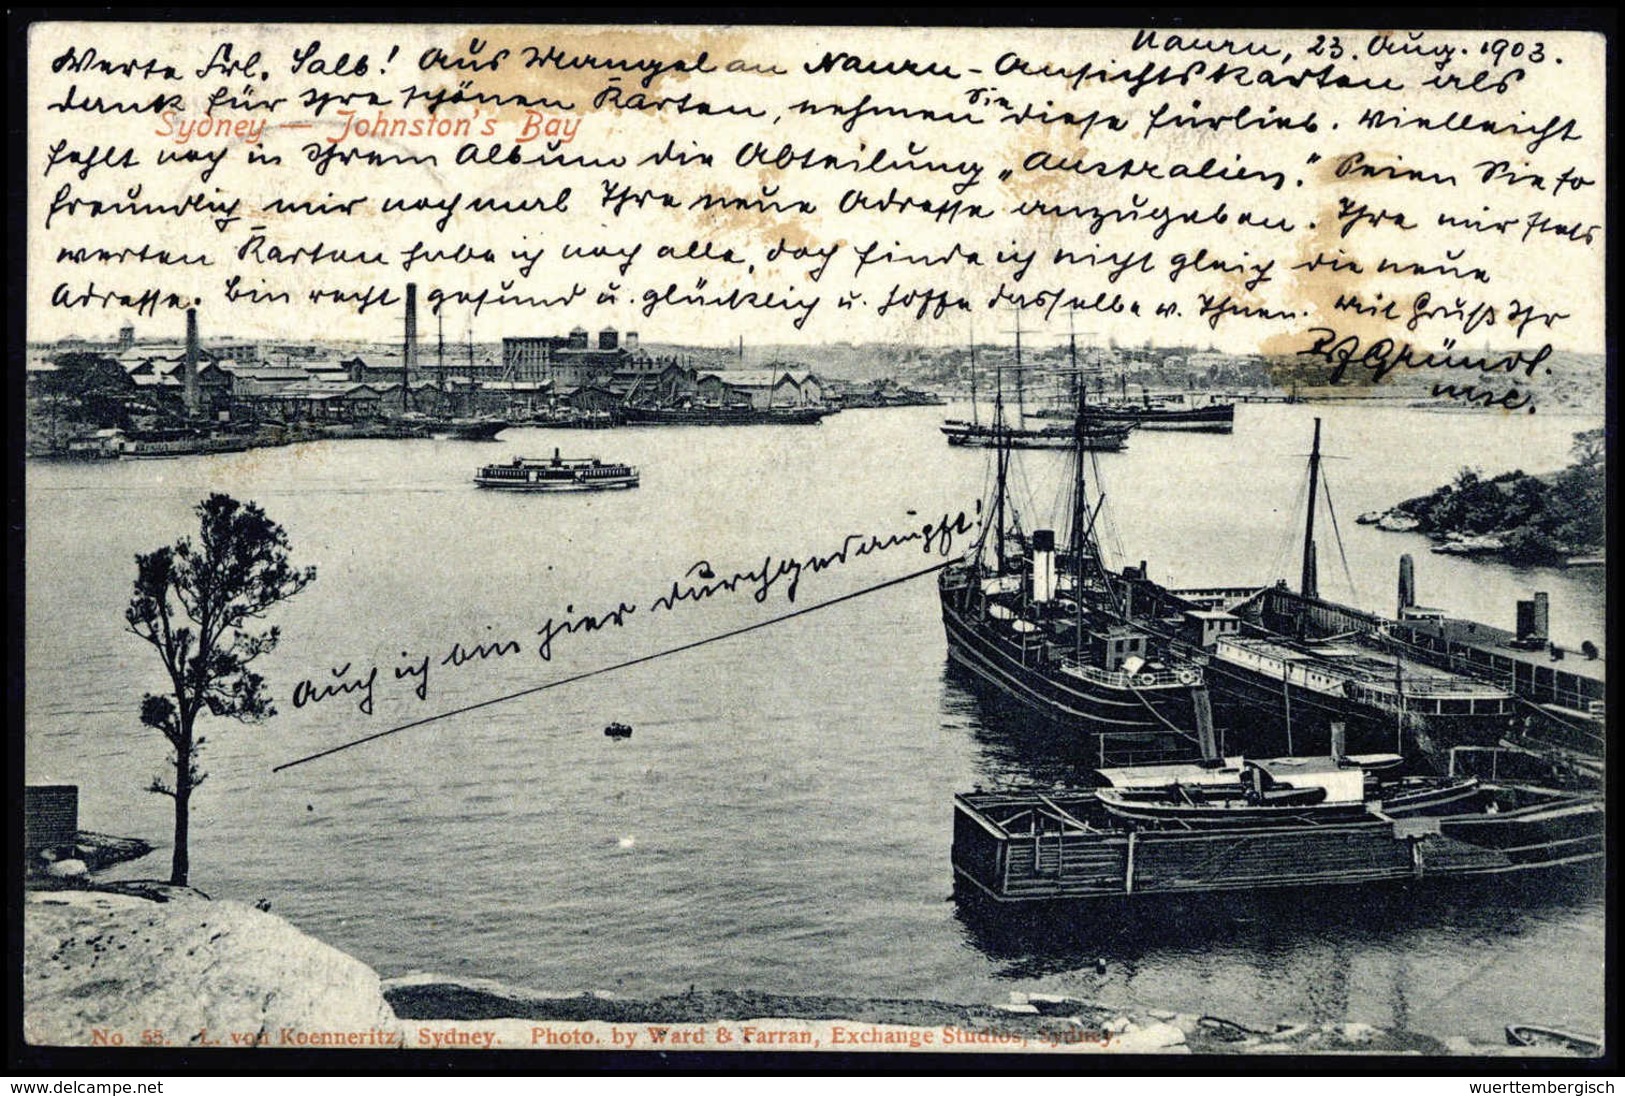 Nauru, 23. Aug. 1903.
Werte Frl. Salb! Aus Mangel an Nauru-Ansichtskarten als
dank für Ihre schönen Karten, nehmen Sie diese fürlieb. Vielleicht
Sydney — Johnston's Bay
fehlt noch in Ihrem Album die Abteilung „Australien." Seien Sie so
freundlich mir nochmal Ihre neue Adresse anzugeben. Ihre mir stets
werten Karten habe ich noch alle, doch finde ich nicht gleich die neue
Adresse. Bin recht gesund u. glücklich u. hoffe dasselbe v. Ihnen. Mit Gruß Ihr
Gründl.
Auch ich bin hier durchgedampft!
No 55. L. von Koenneritz, Sydney. Photo. by Ward & Farran, Exchange Studios, Sydney.
www.delcampe.net
wuerttembergisch